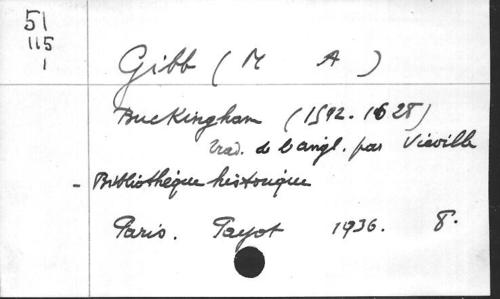 51
115
1
Gibb (M A)
Buckingham (1592.1628)
Trad. de l'angl. par Viéville
- Bibliothéque historique
Paris. Payot 1936. 8.